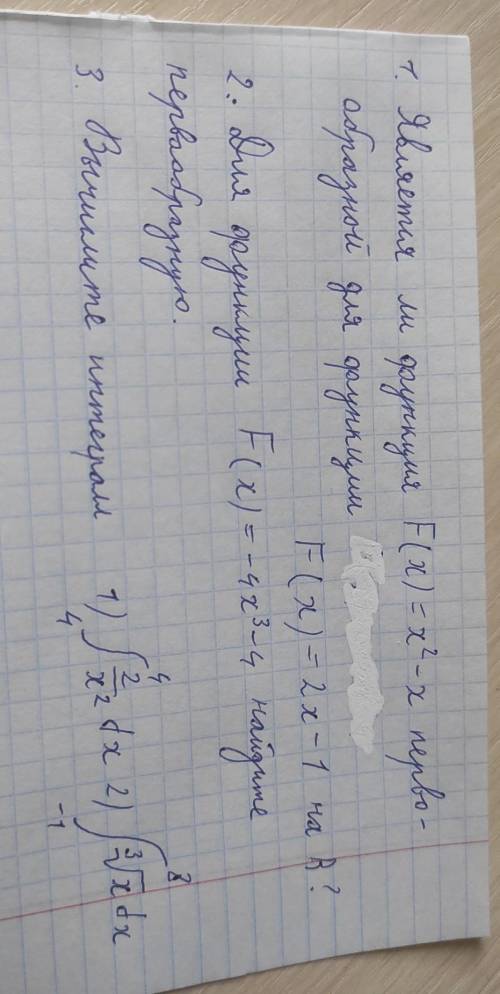 1. Является ли функция F(x) = x² - x перво-
образной для функции
F(x) = 2x - 1 на R?
2. Для функции F(x) = -4x³ - 4 найдите
первообразную.
3. Вычислите интеграл 1) ∫₄⁴ 2/x² dx 2) ∫₋₁⁸ ³√x dx